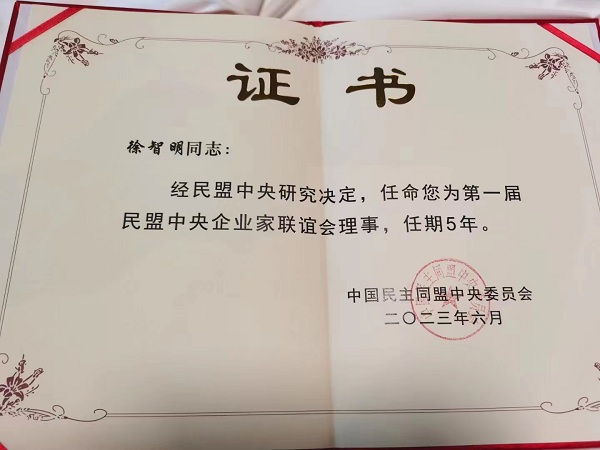 证书
徐智明同志：
经民盟中央研究决定，任命您为第一届
民盟中央企业家联谊会理事，任期5年。
中国民主同盟中央委员会
二〇二三年六月